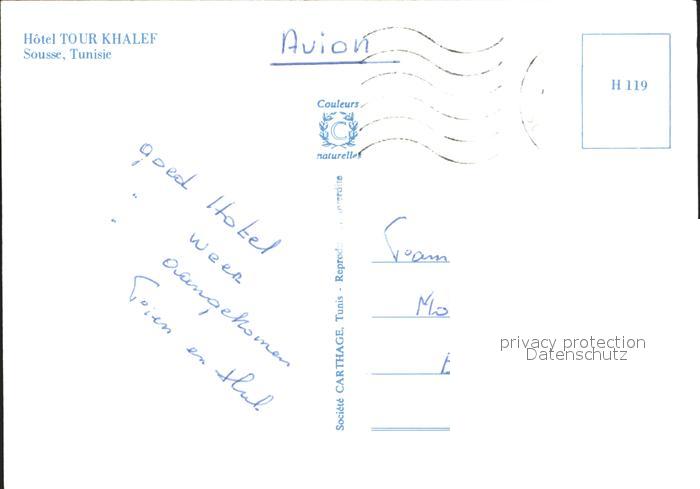 Hôtel TOUR KHALEF
Sousse, Tunisie
Avion
H 119
Couleurs
C
naturelles
goed Hotel
" weer
" aangekomen
Trien en Hub.
Société CARTHAGE, Tunis - Reprod. interdite
Mo
privacy protection
Datenschutz